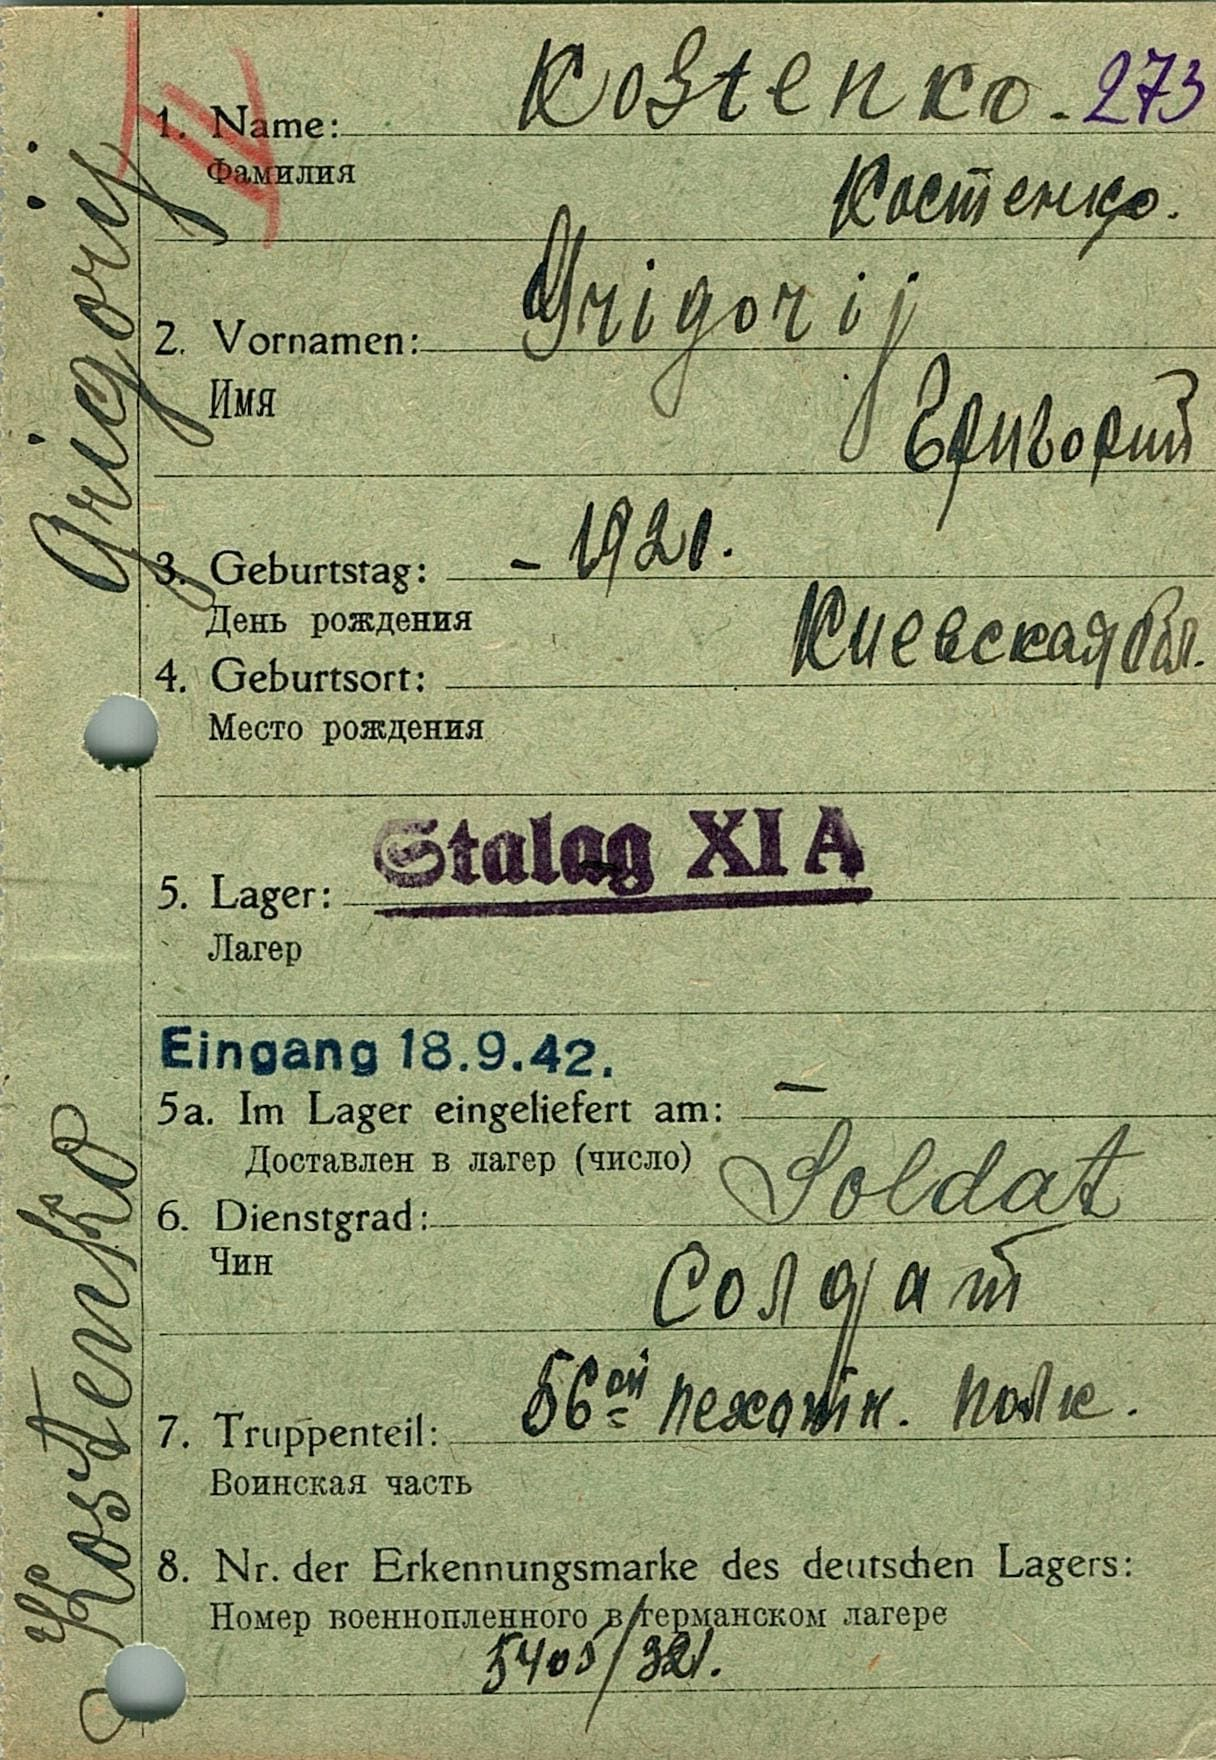 Kostenko. 273
1. Name:
Фамилия
Костенко.
Grigorij
2. Vornamen:
Имя
Григорий
3. Geburtstag: - 1921.
День рождения
Киевская обл.
4. Geburtsort:
Место рождения
Stalag XI A
5. Lager:
Лагер
Eingang 18.9.42.
5a. Im Lager eingeliefert am: —
Доставлен в лагер (число)
6. Dienstgrad: Soldat
Чин
Солдат
7. Truppenteil: 56ой пехотн. полк.
Воинская часть
8. Nr. der Erkennungsmarke des deutschen Lagers:
Номер военнопленного в германском лагере
5405/321.
Kostenko Grigorij